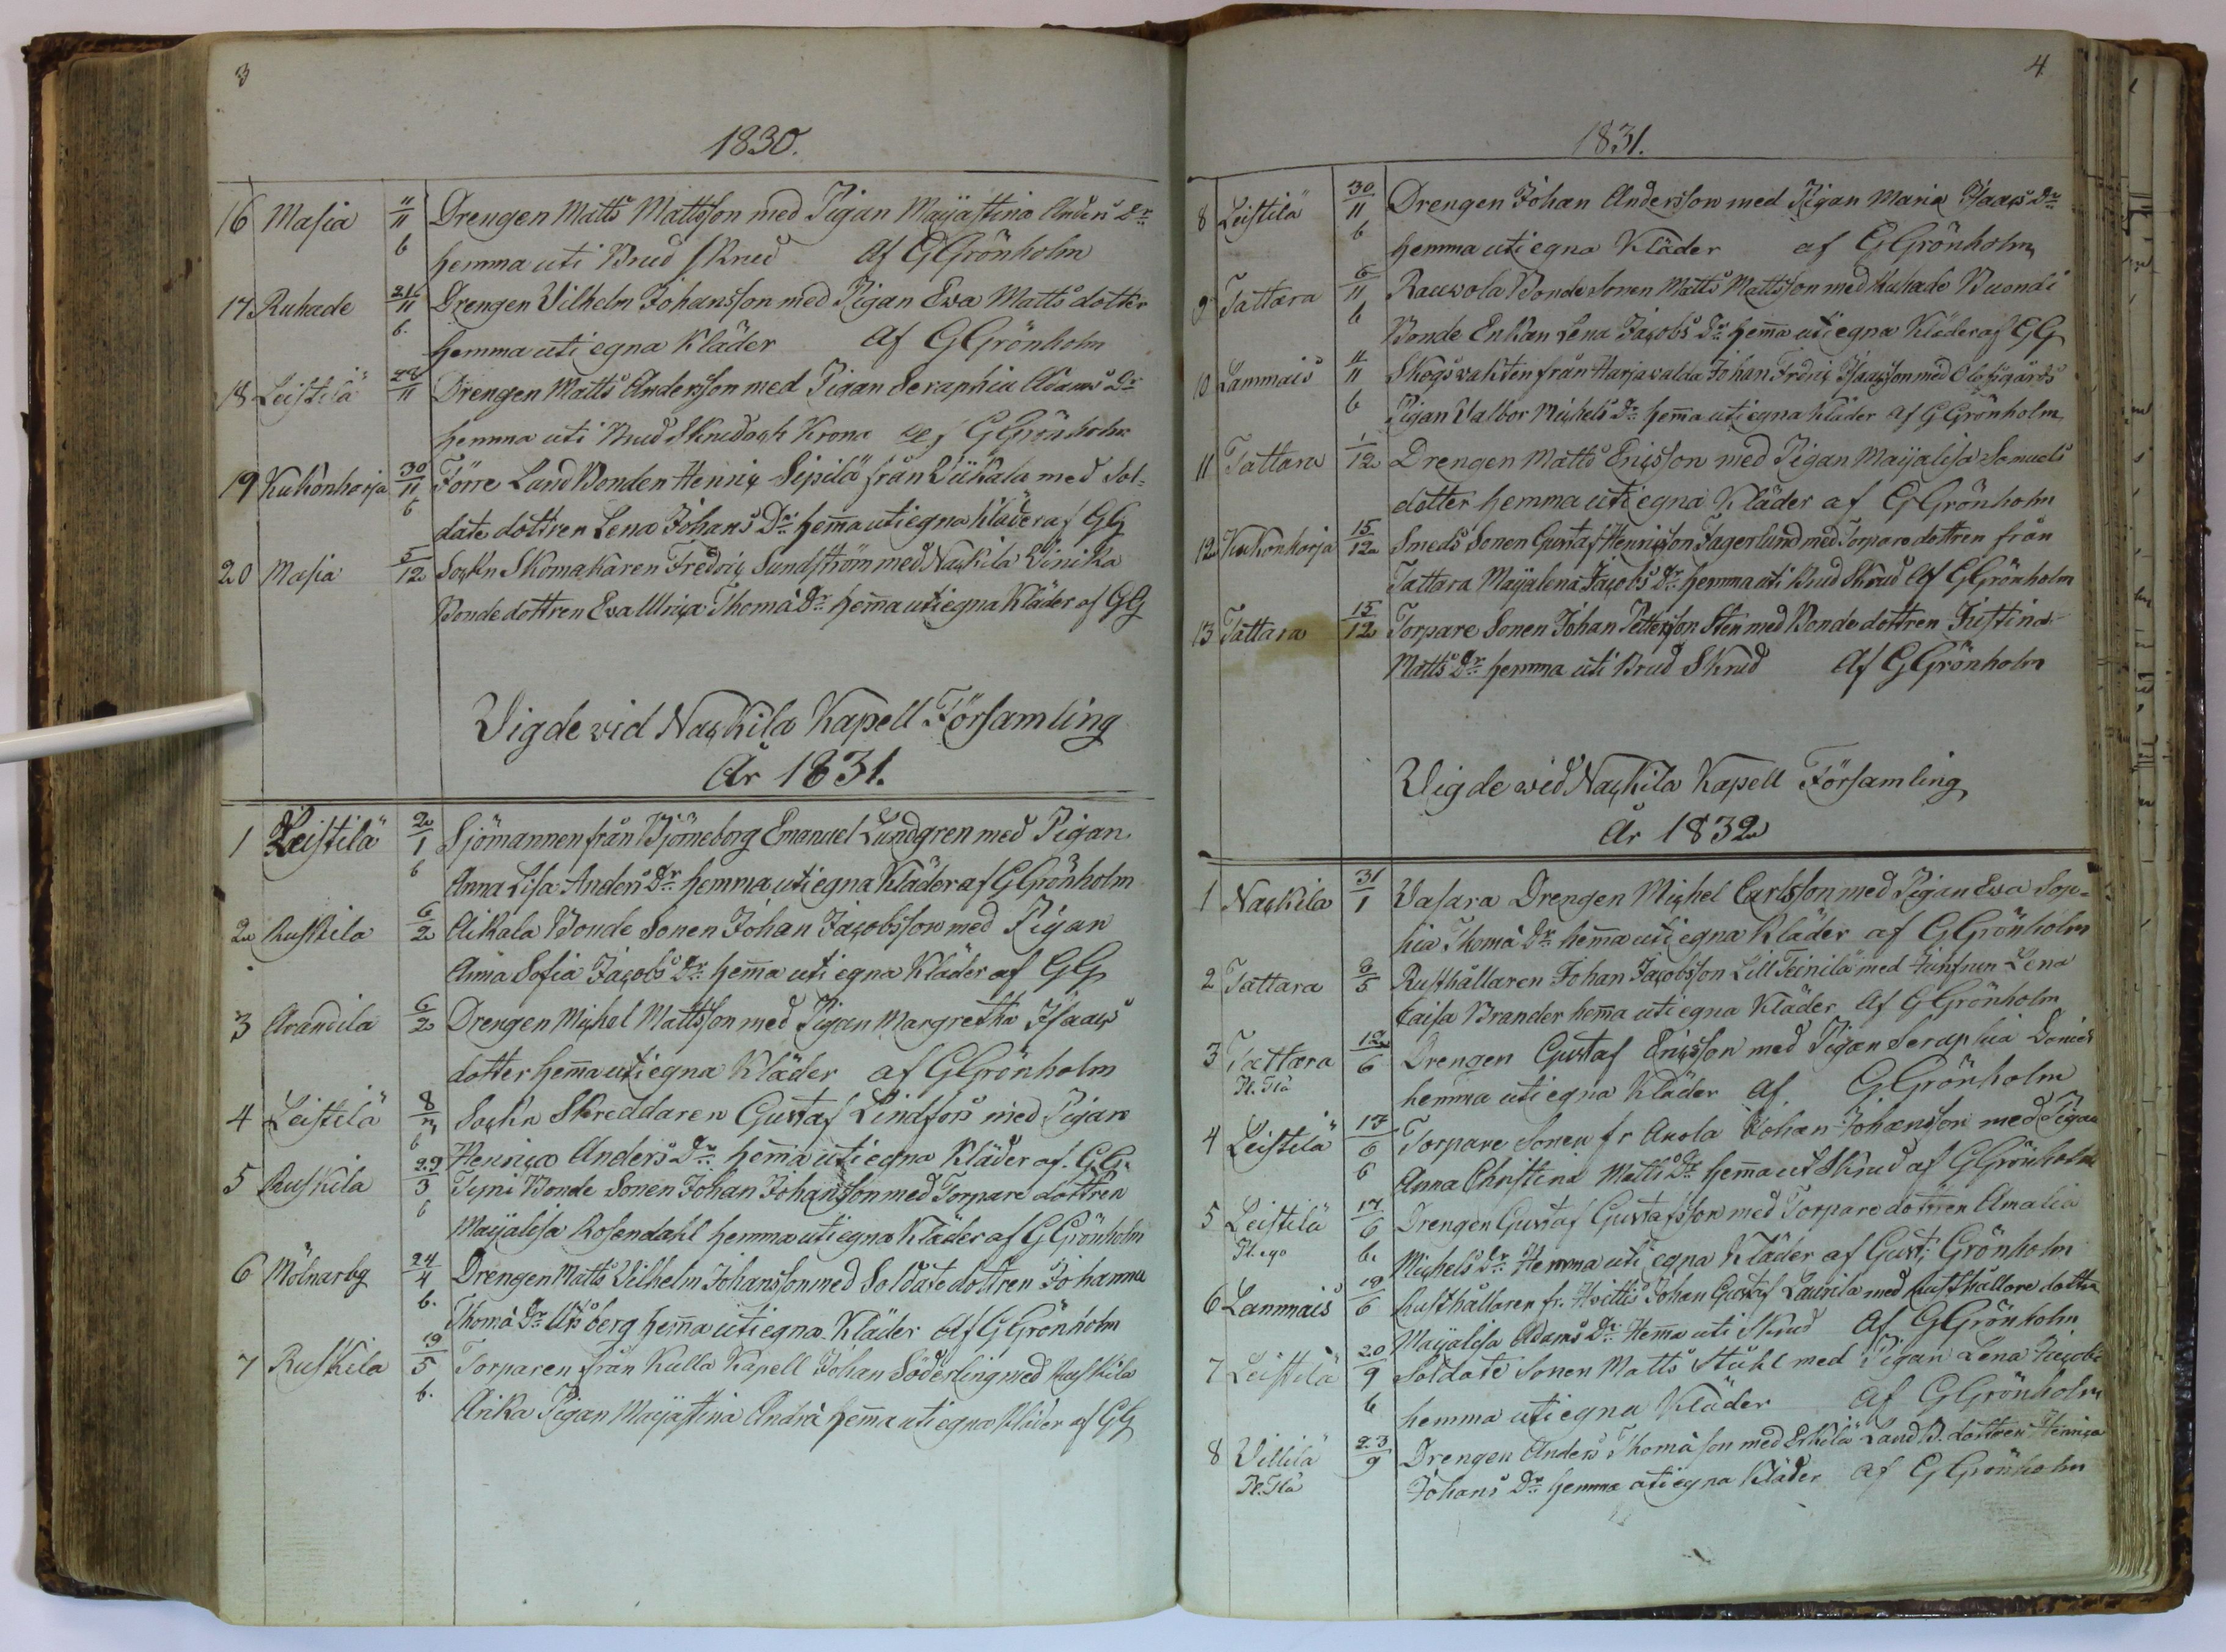 3
1830.
16 Masia 11/11 Drengen Matts Mattsson med Pigan Maijastina Anders Dr
6 hemma uti Brud skrud Af GGrönholm
17 Ruhade 21/11 Drengen Vilhelm Johansson med Pigan Eva Matts dotter
6. hemma uti egna Kläder Af GGrönholm
18 Leistilä 28/11 Drengen Matts Andersson med Pigan Seraphia Adams Dr
hemma uti Brud Skrud och Krona Af GGrönholm
19 Kukonharja 30/11 Förre Land Bonden Henriç Sipilä från Viikala med Sol-
6 date dottren Lena Johans Dr hem̄a uti egna Kläder af GG
20 Masia 5/12 Sockn Skomakaren Fredriç Sundström med Naçkila Vinika
Bonde dottren Eva Ulriça Thomä Dr hem̄a uti egna Kläder af GG
Vigde vid Naçkila Kapell Församling
År 1831.
1 Leistilä 2/1 Sjömannen från Björneborg Emanuel Lundgren med Pigan
6 Anna Lisa Anders Dr hemma uti egna Kläder af GGrönholm
2 Ruskila 6/2 Aikala Bonde Sonen Johan Jaçobsson med Pigan
Anna Sofia Jaçobs Dr hem̄a uti egna Kläder af GG
3 Arandila 6/2 Drengen Miçhel Mattsson med Pigan Margretha Isaaçs
dotter hem̄a uti egna Kläder af GGrönholm
4 Leistilä 8/3 Soçkn Skreddaren Gustaf Lindfors med Pigan
6 Henriça Anders Dr hem̄a uti egna Kläder af. GG.
5 Ruskila 29/3 Tyni Bonde Sonen Johan Johansson med Torpare dottren
6 Maijalisa Rosendahl hemma uti egna Kläder af GGrönholm
6 Mölnarby 24/4 Drengen Matts Vilhelm Johansson med Soldate dottren Johanna
6. Thomä Dr berg hem̄a uti egna Kläder Af GGrönholm
7 Ruskila 19/5 Torparen från Kulla Kapell Johan Söderling med Ruskila
6. Arika Pigan Maijastina Andrä hem̄a uti egna Kläder af GG
4
1831.
8 Leistilä 30/11 Drengen Johan Andersson med Pigan Maria Isaaçs Dr
6 hemma uti egna Kläder af GGrönholm
9 Tattara 6/11 Rauvola Bonde Sonen Matts Mattsson med Ruhade
6 Bonde Enkan Lena Jaçobs Dr hem̄a uti egna Kläder af GG
10 Lammais 11/11 Skogsvakten från Harjavalda Johan Fredriç Isaaçsson med
6 Pigan Valbor Miçhels Dr hem̄a uti egna Kläder af GGrönholm
11 Tattara 1/12 Drengen Matts Eriçsson med Pigan Maijalisa Samuels
dotter hemma uti egna Kläder af GGrönholm
12 Kukonharja 15/12 Smeds Sonen Gustaf Henriçsson Fagerlund med Torpare dottren från
Tattara Maijalena Jaçobs Dr hemma uti Brud Skrud Af GGrönholm
13 Tattara 15/12 Torpare Sonen Johan Pettersson Sten med Bonde dottren Kristina
Matts Dr hemma uti Brud Skrud Af GGrönholm
Vigde wid Naçkila Kapell Församling
År 1832
1 Naçkila 31/1 Vasara Drengen Miçhel Carlsson med Pigan Eva Sop-
hia Thomä Dr hem̄a uti egna Kläder af GGrönholm
2 Tattara 3/5 Rusthållaren Johan Jaçobsson Lill Teinilä med Jumfrun Lena
Caisa Brander hem̄a uti egna Kläder Af GGrönholm
3 Tattara 12/6 Drengen Gustaf Eriçsson med Pigan Seraphia Daniels
hemma uti egna Kläder Af. GGrönholm
4 Leistilä 17/6 Torpare Sonen fr Anola Johan Johansson med Pigan
6 Anna Christina Matts Dr hem̄a ut Skrud af GGrönholm
5 Leistilä 17/6 Drengen Gustaf Gustafsson med Torpare dottren Amalia
6. Miçhels Dr Hemma uti egna Kläder af Gust: Grönholm
6 Lammais 19/6 Rusthållaren fr. Hvittis Johan Gustaf Laurila med Rusthållare dottr
Maijalisa Adams Dr Hem̄a uti Skrud Af GGrönholm
7 Leistilä 20/9 Soldate Sonen Matts Stühl med Pigan Lena Jaçobs
6 hemma uti egna Kläder Af GGrönholm
8 Villilä 23/9 Drengen Anders Thomäson med Eskila Land B. dottren Henriça
Johans Dr hemma uti egna Kläder Af GGrönholm